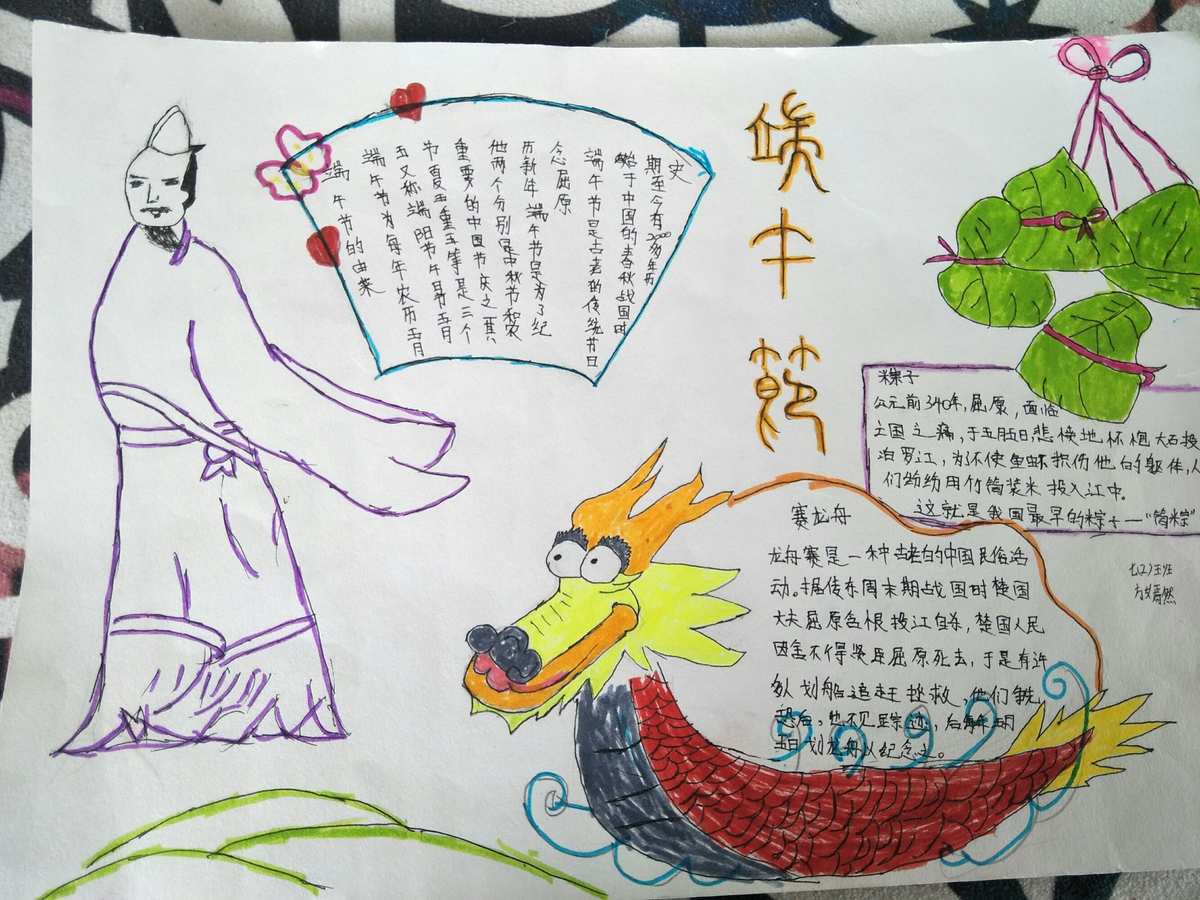 端午節
端午节的由来
端午节为每年农历五月
五又称端阳节午日节五月
节夏五重五等是三个
重要的中国节庆之一其
他两个分别是中秋节和农
历新年端午节是为了纪
念屈原
端午节是古老的传统节日
始于中国的春秋战国时
期至今有2000多年历
史
粽子
公元前340年,屈原,面临
亡国之痛,于五月五日悲愤地怀抱大石投
汨罗江,为不使鱼虾损伤他的躯体,人
们纷纷用竹筒装米投入江中。
这就是我国最早的粽子—“筒粽”
赛龙舟
龙舟赛是一种古老的中国民俗活
动。据传东周末期战国时楚国
大夫屈原含恨投江自杀,楚国人民
因舍不得贤臣屈原死去,于是有许
多人划船追赶拯救,他们
也不见踪迹,后
五日划龙舟以纪念之。